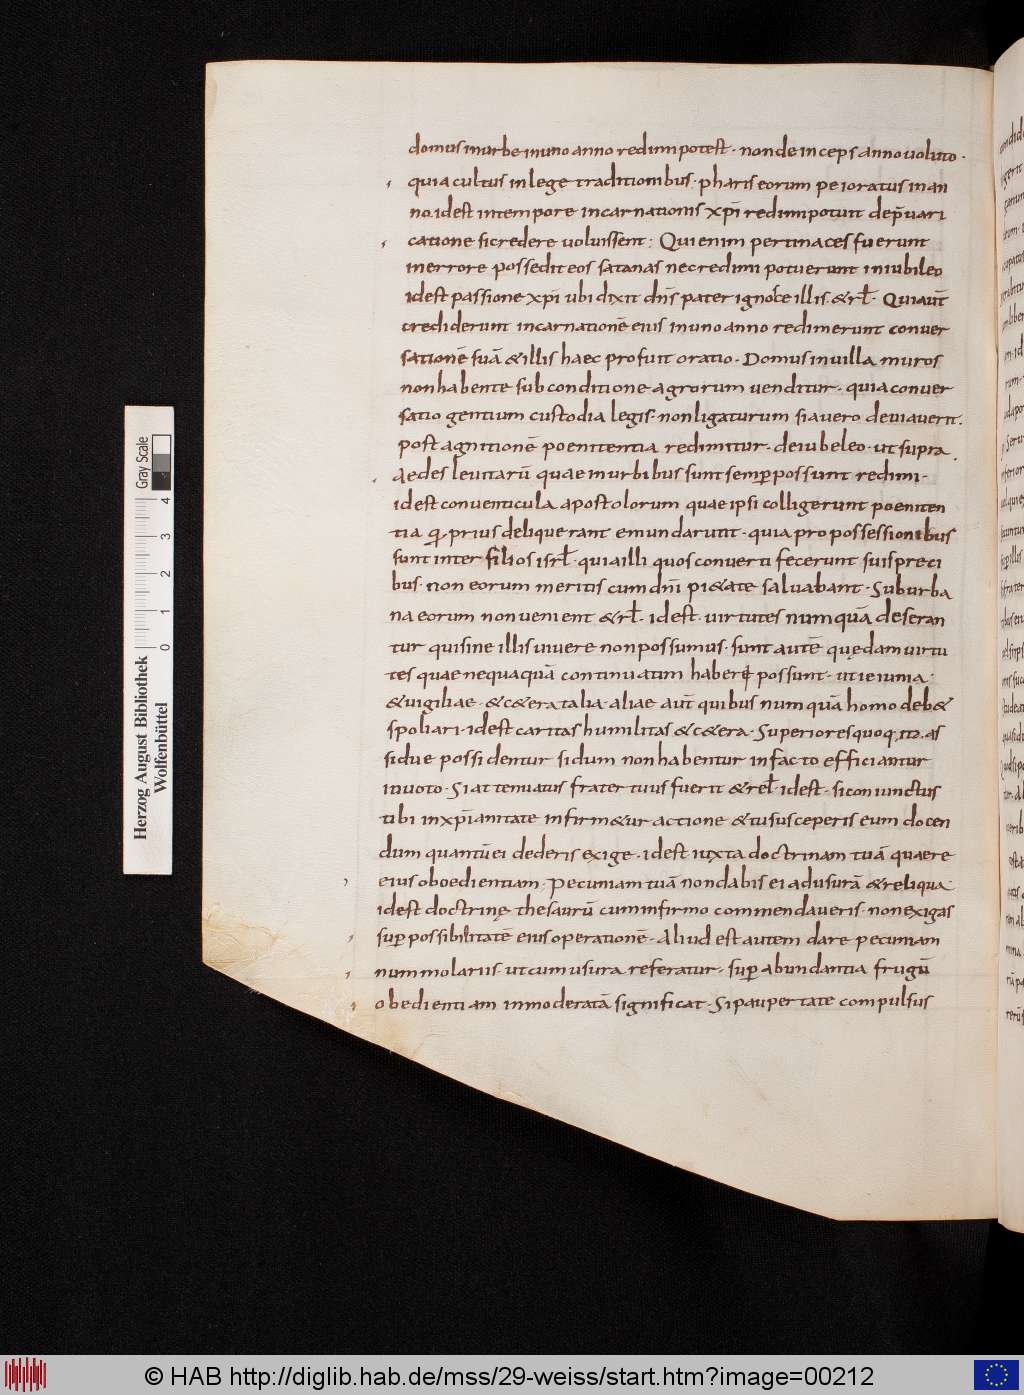 domus inurbe inuno anno redimi potest · non deinceps anno uoluto ·
quia cultus in lege traditionibus · phariseorum peioratus in an
no. idest intempore incarnationis xp̄i redimi potuit dep̄uari
catione si credere uoluissent : Qui enim pertinaces fuerunt
in errore possedit eos satanas nec redimi potuerunt in iubileo
idest passione xp̄i ubi dixit dn̄s pater ignosce illis · &rł · Qui aūt
crediderunt incarnationē eius in uno anno redimerunt conuer
sationē suā & illis haec profuit oratio · Domus in uilla muros
non habente sub conditione agrorum uenditur · quia conuer
satio gentium custodia legis · non ligaturum si a uero deuiauerit .
post agnitionē poenitentia redimitur · de iubeleo · ut supra .
Aedes leuitarū quae in urbibus sunt semp̲ possunt redimi ·
idest conuenticula apostolorum quae ipsi colligerunt poeniten
tia q prius delinquerant emundarutit · quia pro possessionibus
sunt inter filios isrł · quia illi quos conuerti fecerunt suis preci
bus · non eorum meritis cum dn̄i pi&ate saluabant · Suburba
na eorum non uenient &rł · idest · uirtutes numquā deseran
tur qui sine illis uiuere non possumus · sunt autē quędam uirtu
tes quae nequaquā continuatim haberi possunt · ut ieiunia ·
& uigiliae · & c&era talia · aliae aūt quibus numquā homo deb&
spoliari · idest caritas humilitas & c&era · Superiores quoq,
si due possidentur si dum non habentur in facto efficiantur
in uoto · Si attenuatus frater tuus fuerit & reł · idest · si coniunctus
tibi in xp̄ianitate infirm&ur actione & tu susceperis eum docen
dum quantū ei dederis exige · idest iuxta doctrinam tuā quaere
eius oboedientiam · Pecuniam tuā non dabis ei ad usurā & reliqua ·
idest doctrinę thesaurū cum infirmo commendaueris · non exigas
sup̲ possibilitatē eius operationē · Aliud est autem dare pecuniam
nummolariis · ut cum usura referatur · sup̲ abundantia frugū
obedientiam inmoderatā significat · Si paupertate compulsus
Herzog August Bibliothek
Wolfenbüttel
Gray Scale
0 1 2 3 4
© HAB http://diglib.hab.de/mss/29-weiss/start.htm?image=00212